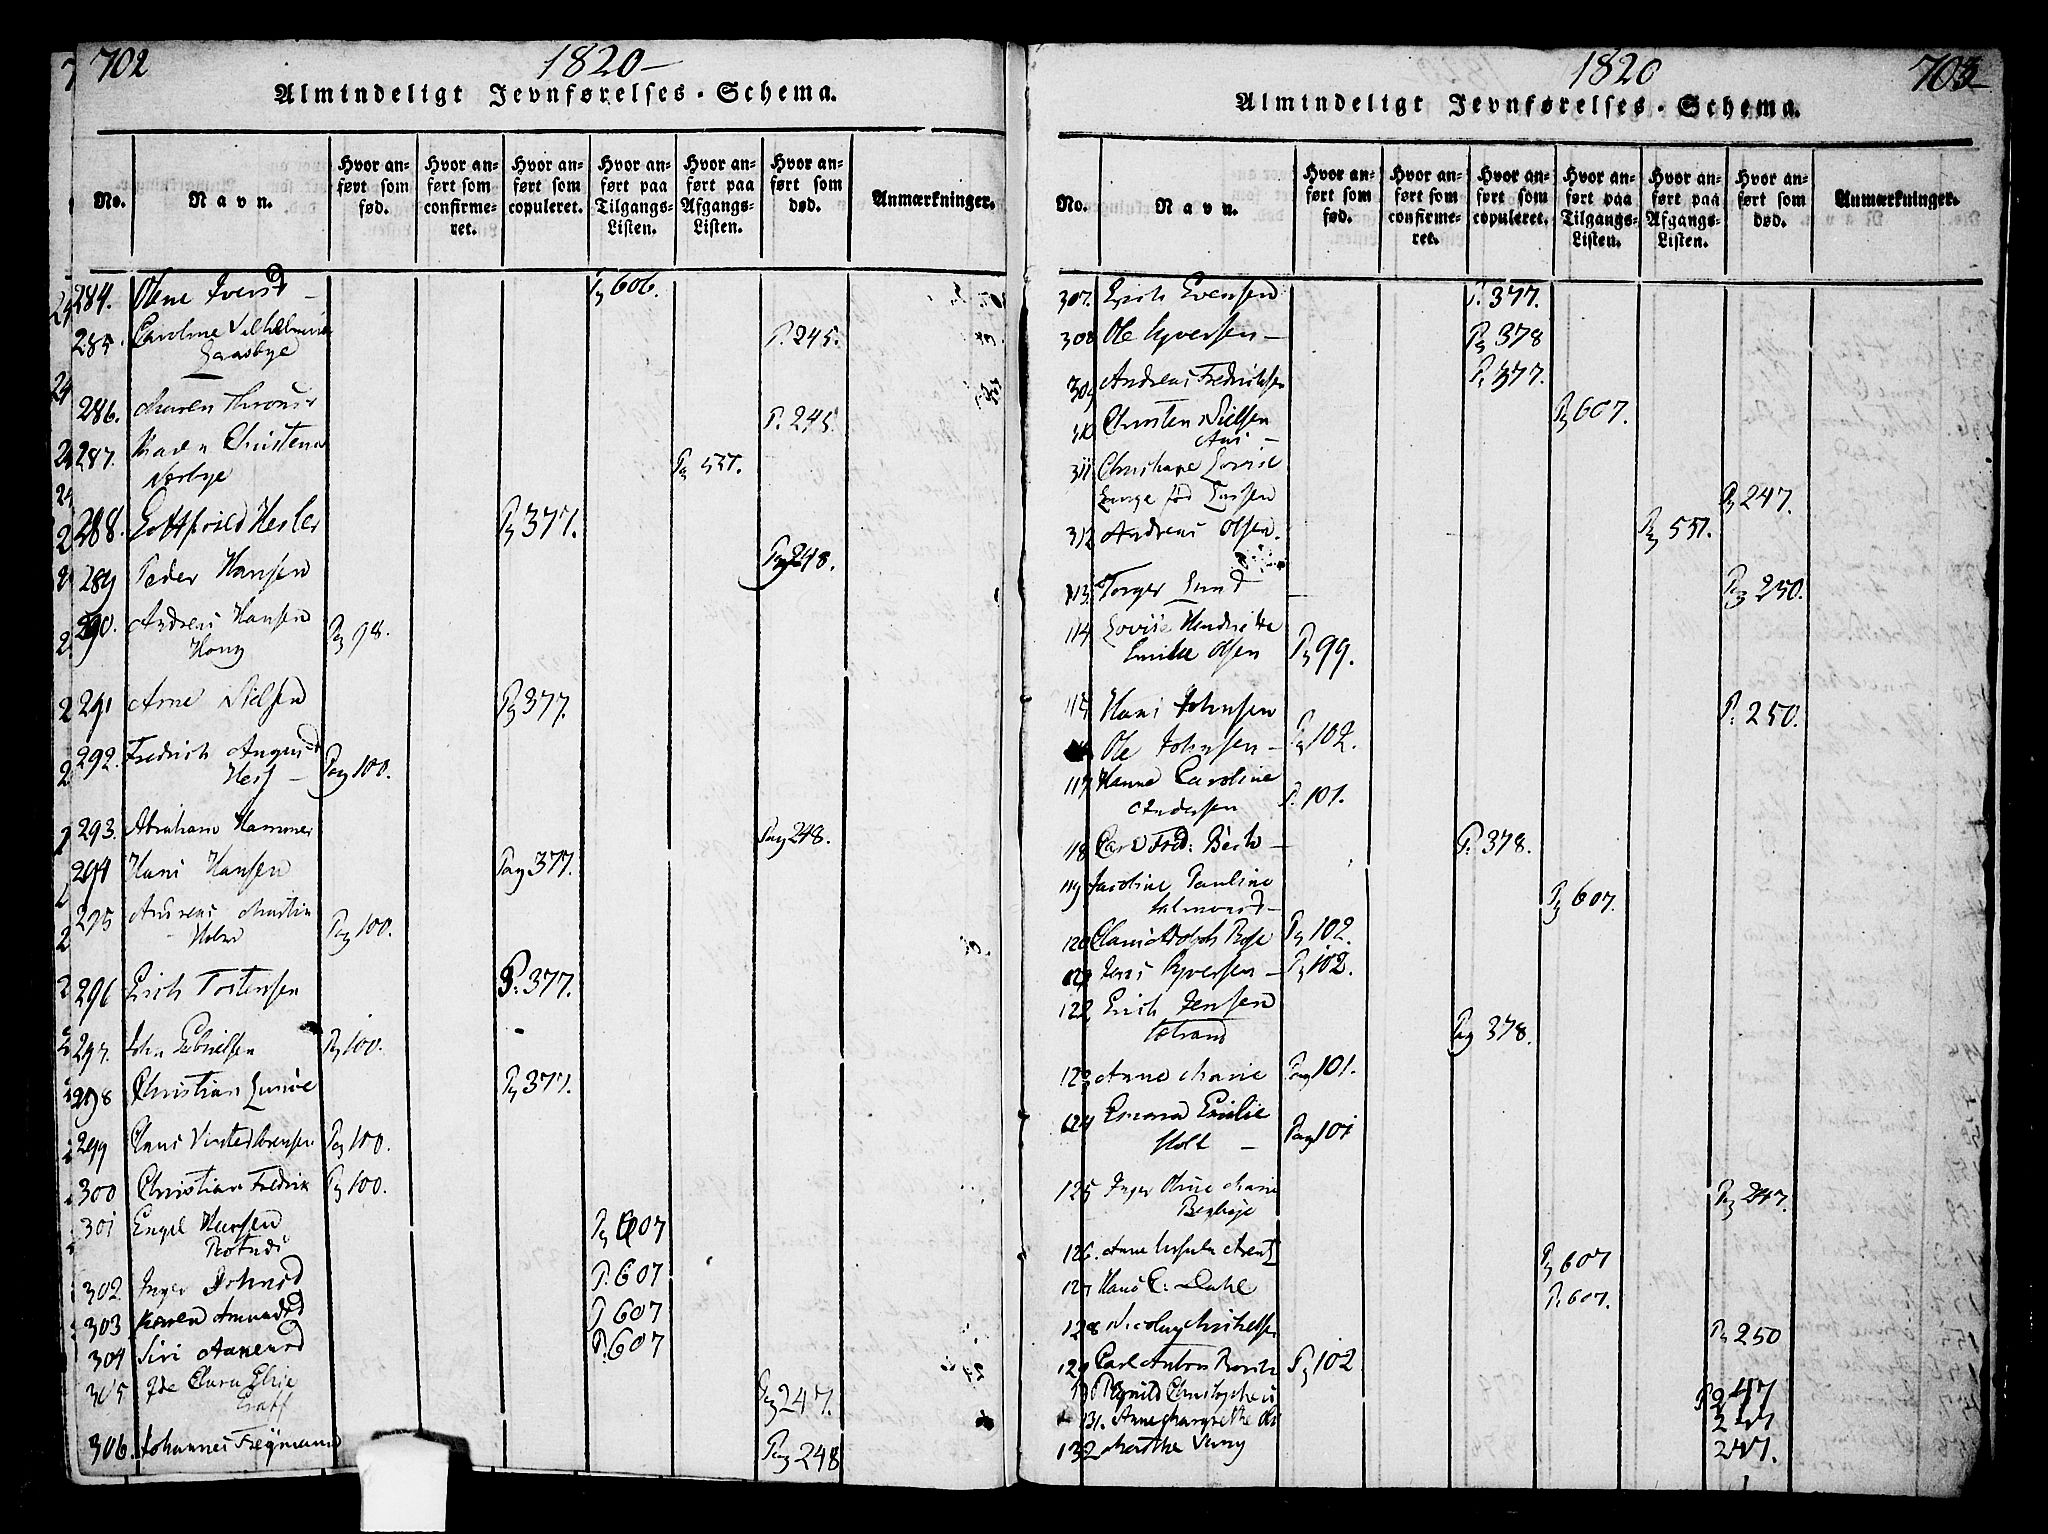 702
1820—
Almindeligt Jevnførelses-Schema.
No.
Navn.
Hvor an-
ført som
fød.
Hvor an-
ført som
confirme-
ret.
Hvor an-
ført som
copuleret.
Hvor an-
ført paa
Tilgangs-
Listen.
Hvor an-
ført paa
Afgangs-
Listen.
Hvor an-
ført som
død.
Anmærkninger.
284. Olene Iversd — Pg 606.
285. Caroline Vilhelmine P. 245.
286. Maren P. 245.
287. Karen Christena Pg 551.
Norbye
288. Gottfried Hesler Pg 377.
289 Peder Hansen Pag 248.
290. Andreas Hansen Pg 98.
Hong
291 Arne Nielsen Pg 377.
292. Fredrich August Pag 100.
293. Abraham Hammer Pag 248.
294 Hans Hansen Pag 377.
295 Andreas Martin Pag 100.
Holm
296 Erich Tostensen P. 377.
297. John Gabrielsen Pg 100.
298 Christian Lunde Pg 377.
299 Claus Pag 100.
300 Christian Fredrik Pg 100.
301 Engel Hansen Pg 607
302. Inger Johnsd P. 607
303 Karen Amundsd P. 607
304 Siri P. 607
305 Ide Clara Elise Pag 247.
Graff
306. Johannes Freymann Pag 248
1820
703
Almindeligt Jevnførelses-Schema.
No.
Navn.
Hvor an-
ført som
fød.
Hvor an-
ført som
confirme-
ret.
Hvor an-
ført som
copuleret.
Hvor an-
ført paa
Tilgangs-
Listen.
Hvor an-
ført paa
Afgangs-
Listen.
Hvor an-
ført som
død.
Anmærkninger.
307. Erich Evensen P. 377.
308 Ole Syversen — Pg 378
309 Andreas Fredrichsen P. 377.
310 Christen Nielsen Pg 607.
311 Christiane Lovise
Lunge fød Pg 247.
312 Andreas Olsen. Pg 551.
113. Torger Lund Pag 250.
114 Lovise Hendriette
Emilie Olsen Pg 99.
115 Hans Johnsen P. 250.
Ole Johnsen — Pg 102.
117 Hanne Caroline P. 101.
Andersen
118 Carl Fred: — P. 378.
119 Jacobine Pauline Pg 607.
120 Claus Adolph Pg 102.
Jens Syversen — Pg 102.
122 Erich Jensen
Strand Pag 378.
123 Anne Marie Pag 101.
124 Emilie Pag 101
Holt —
125 Inger Marie Pag 247.
126. Anne Ursula Arentz Pg 607
127 Hans C. Dahl P. 607.
128 Nicolay Michelsen Pg 250
129 Carl Anton Pg 102
P 247
131. Anne Margrethe 247
132 Marthe 247.